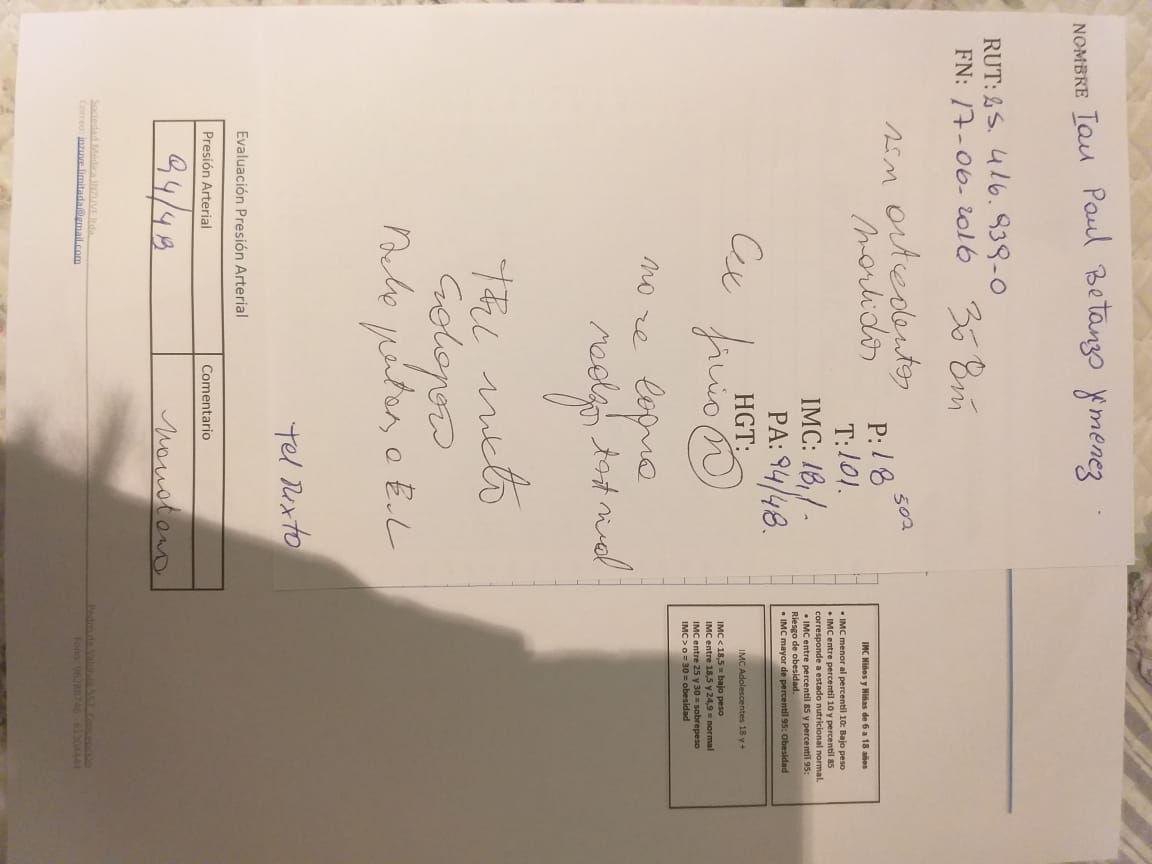 NOMBRE Ian Paul Betanzo Jimenez
RUT: 25.416.939-0
FN: 17-06-2016 3a 8m
sin antecedentes
morbidos
P: 18 502
T: 101.
IMC: 18,1.
PA: 94/48.
HGT:
Ex fisico (n)
no se logra
realizar test visual
TEL mixto
Debe a E.L
Tel Mixto
IMC Niños y Niñas de 6 a 18 años
• IMC menor al percentil 10: Bajo peso
• IMC entre percentil 10 y percentil 85
corresponde a estado nutricional normal.
• IMC entre percentil 85 y percentil 95:
Riesgo de obesidad.
• IMC mayor de percentil 95: Obesidad
IMC Adolescentes 18 y +
IMC < 18,5 = bajo peso
IMC entre 18,5 y 24,9 = normal
IMC entre 25 y 30 = sobrepeso
IMC > o = 30 = obesidad
Evaluación Presión Arterial
Presión Arterial Comentario
94/48
Sociedad Médica INZUVE ltda.
Correo: inzuve.limitada@gmail.com
Pedro de Valdivia 557, Concepción
Fono: 96288746 - 61204444